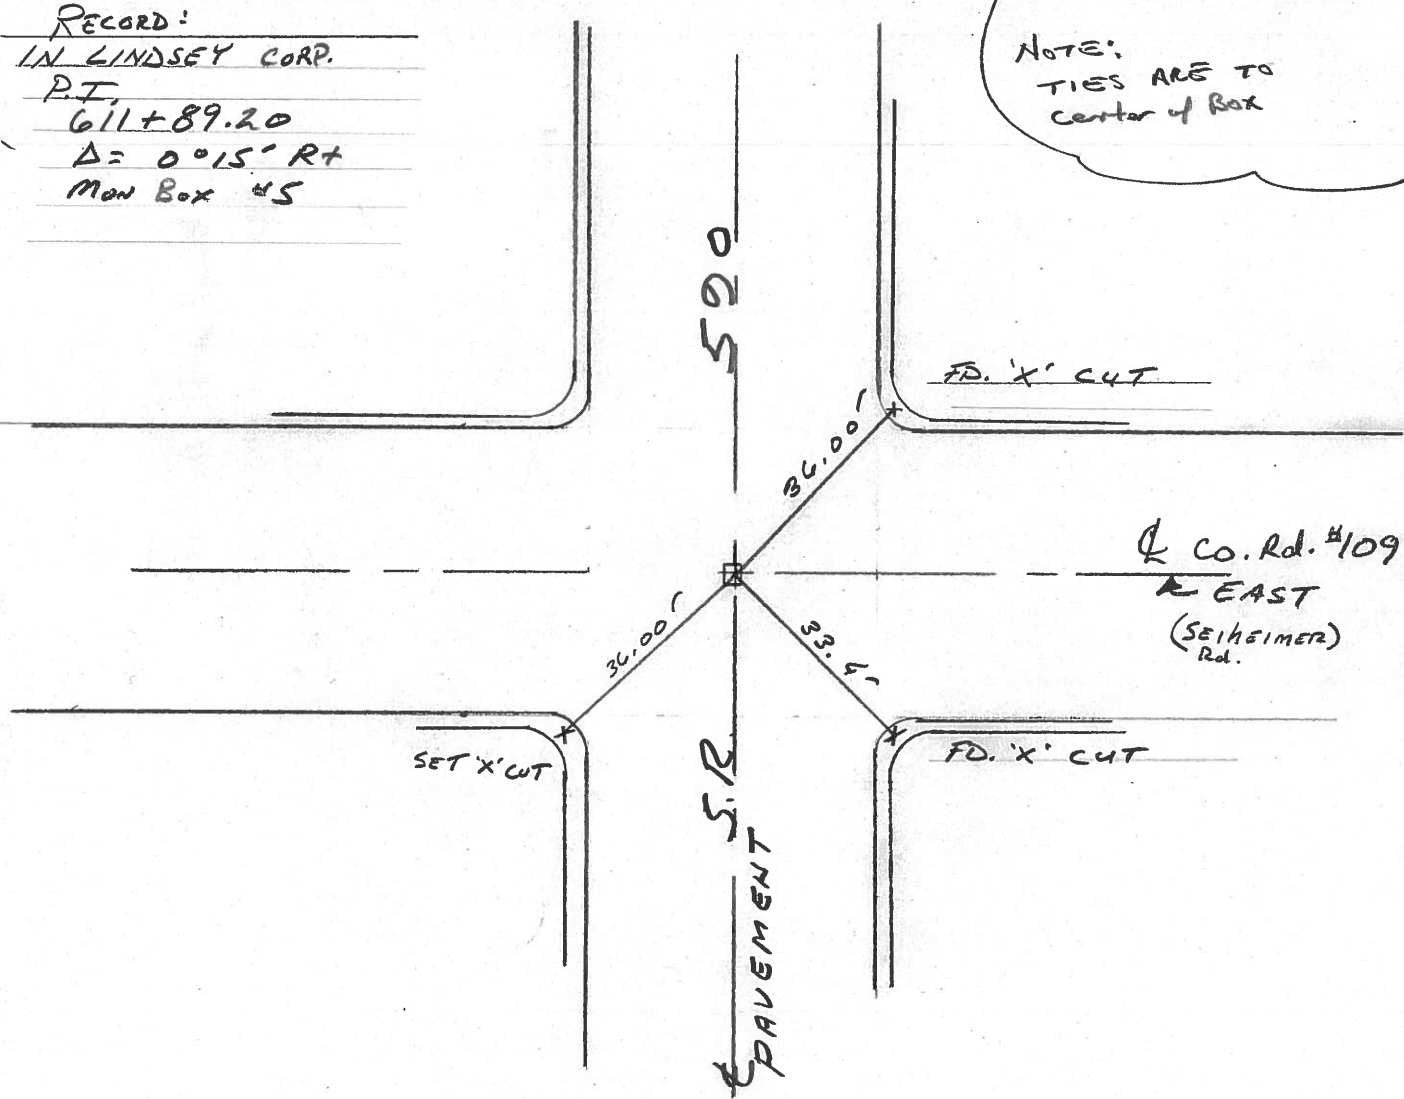 RECORD:
IN LINDSEY CORP.
P.I.
611+89.20
Δ= 0°15' Rt
Mon Box #5
NOTE:
TIES ARE TO
center of Box
590
FD. 'X' CUT
36.00'
℄ Co. Rd. #109
EAST
(SEIHEIMER)
Rd.
36.00'
33.5'
SET 'X' CUT
FD. 'X' CUT
S.R.
℄ PAVEMENT